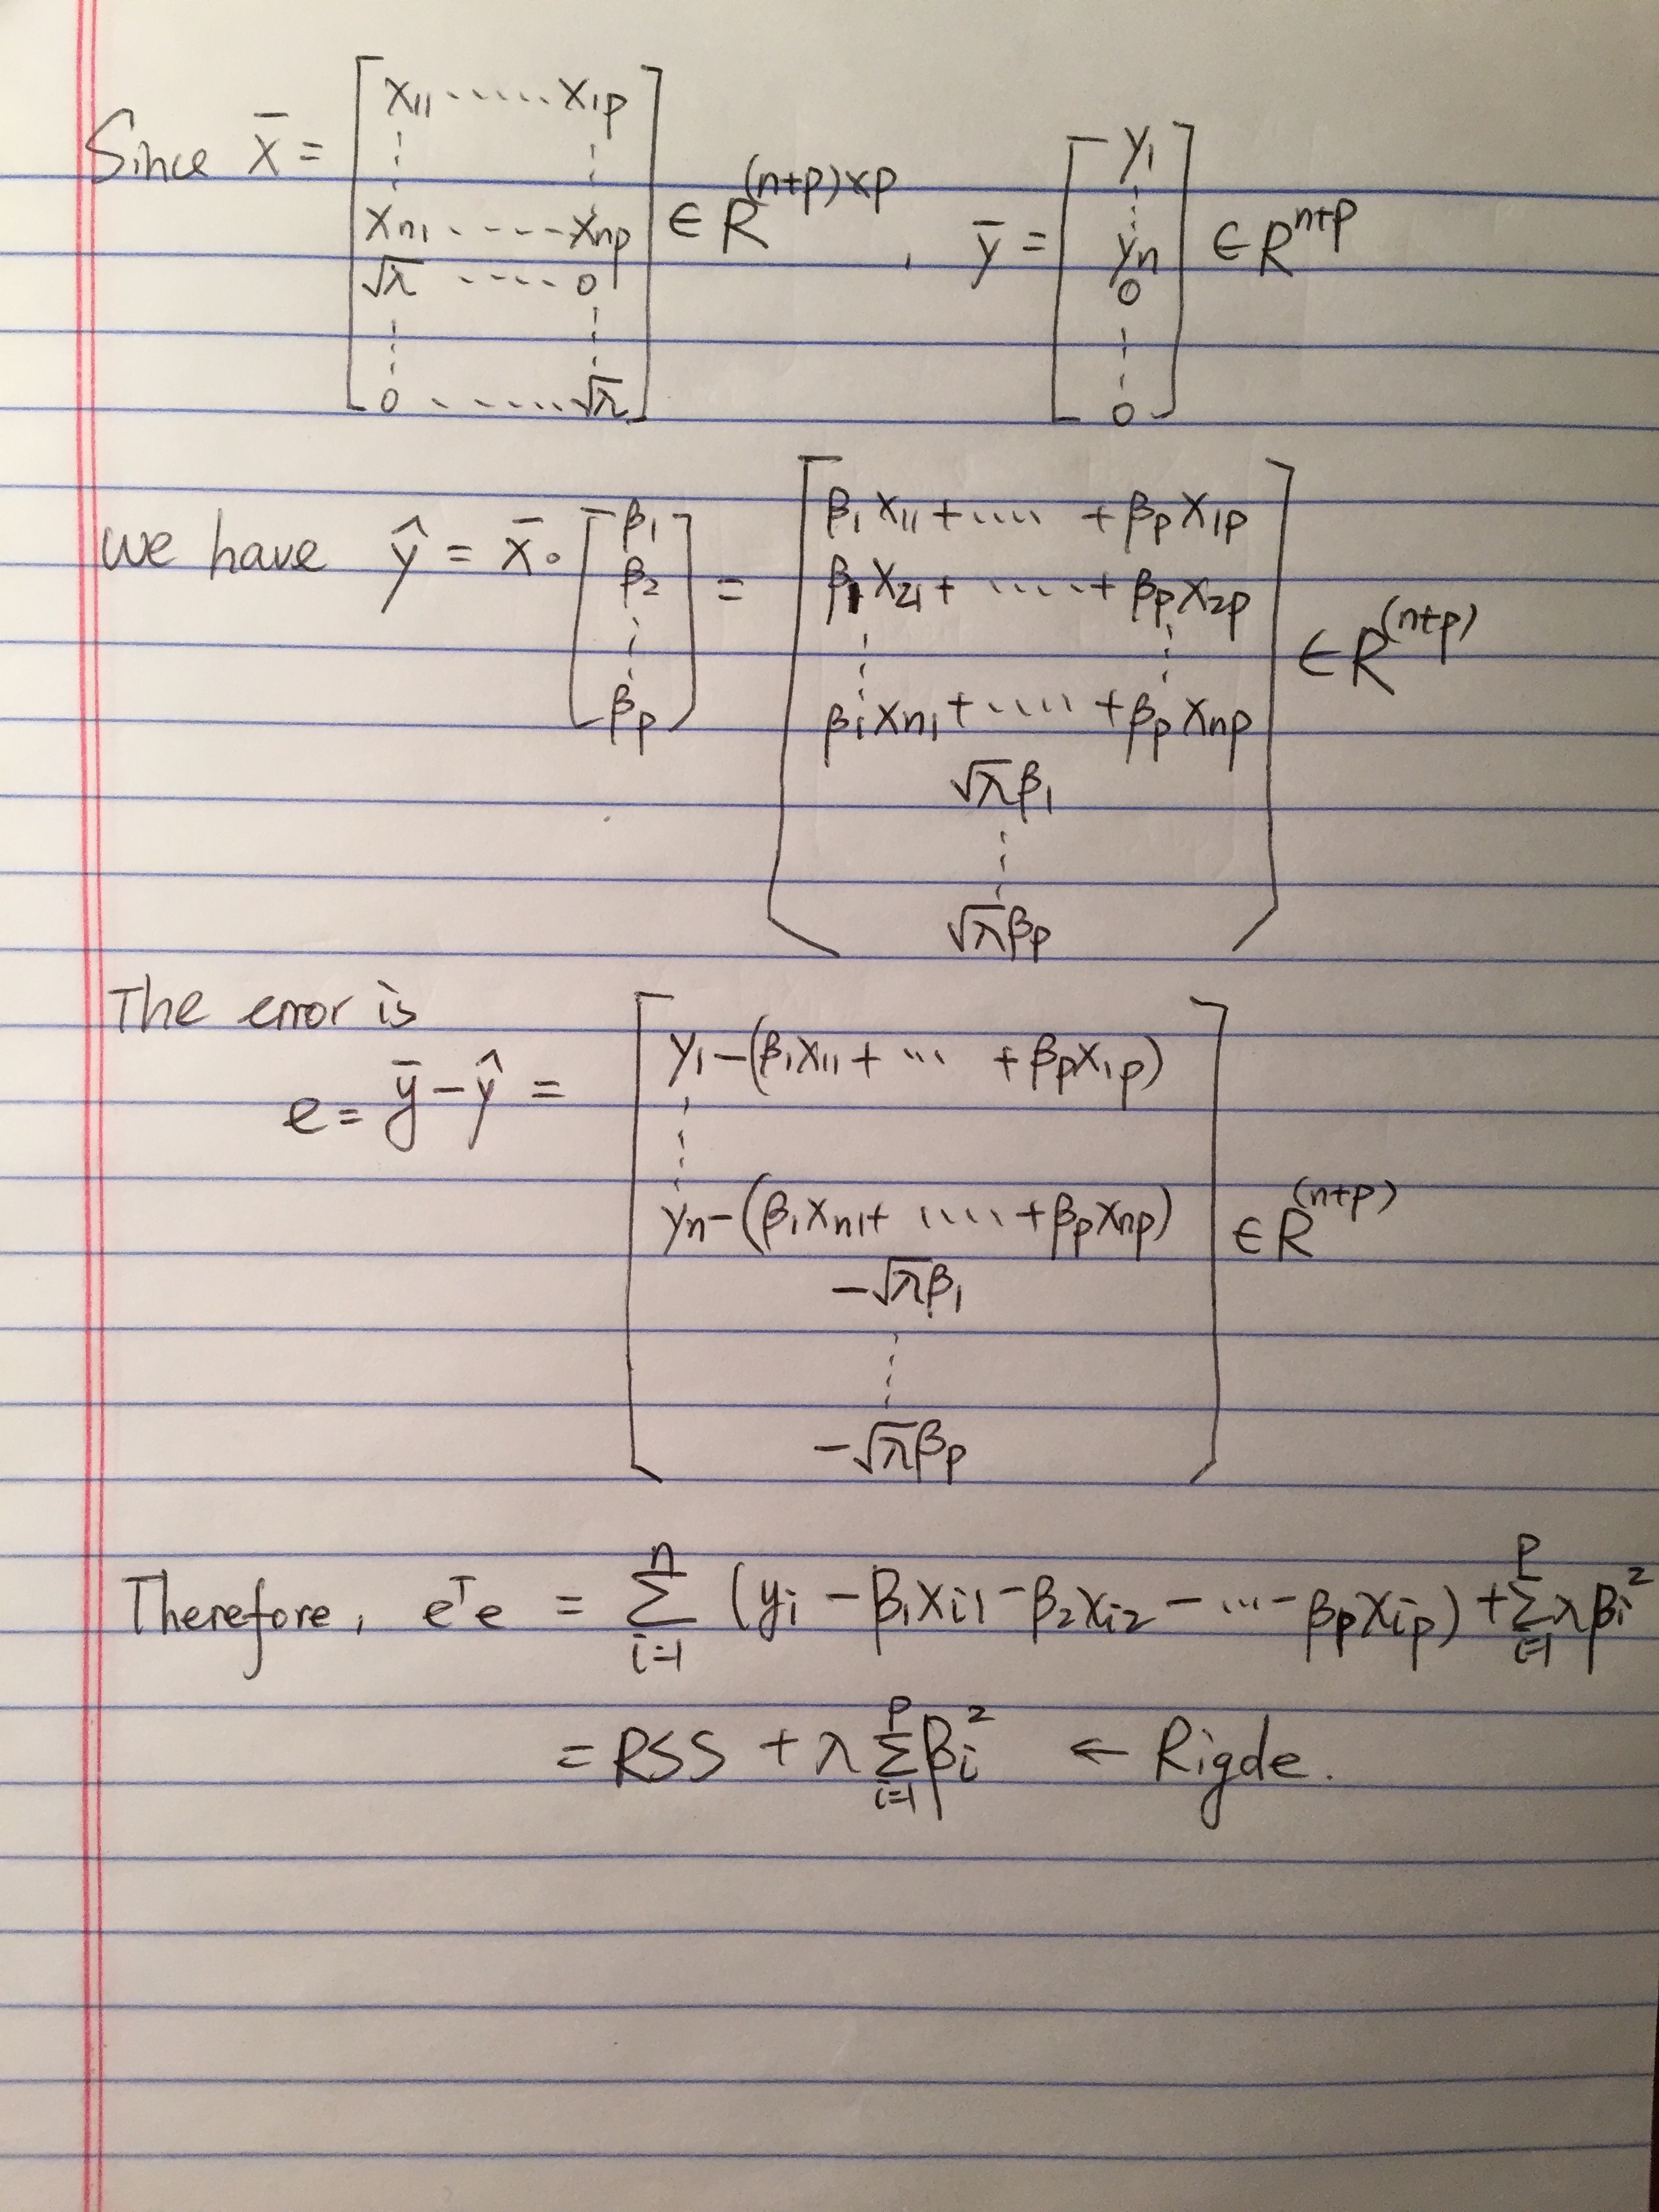 Since x̄ = [ x11 ..... x1p ⋮ ⋮ xn1 ..... xnp √λ .... 0 ⋮ ⋮ 0 ...... √λ ] ∈ R^(n+p)×p , ȳ = [ y1 ⋮ yn 0 ⋮ 0 ] ∈ R^n+p
we have ŷ = x̄ · [ β1 β2 ⋮ βp ] = [ β1 x11 + .... + βp x1p β1 x21 + ..... + βp x2p ⋮ ⋮ β1 xn1 + ..... + βp xnp √λ β1 ⋮ √λ βp ] ∈ R^(n+p)
The error is
e = ȳ - ŷ = [ y1 - (β1 x11 + ... + βp x1p) ⋮ yn - (β1 xn1 + .... + βp xnp) -√λ β1 ⋮ -√λ βp ] ∈ R^(n+p)
Therefore, e^T e = Σ_{i=1}^{n} (yi - β1 xi1 - β2 xi2 - ... - βp xip) + Σ_{i=1}^{p} λ βi^2
= RSS + λ Σ_{i=1}^{p} βi^2 ← Rigde.